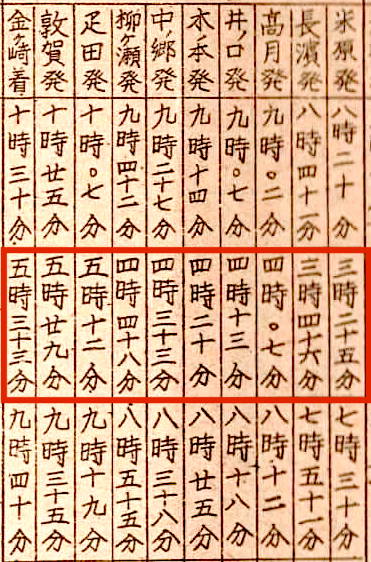 米原発 八時二十分 三時二十五分 七時三十分
長濱発 八時四十一分 三時四十六分 七時五十一分
高月発 九時〇二分 四時〇七分 八時十二分
井ノ口発 九時〇七分 四時十三分 八時十八分
木ノ本発 九時十四分 四時二十分 八時廿五分
中ノ郷発 九時二十七分 四時三十三分 八時三十八分
柳ヶ瀬発 九時四十二分 四時四十八分 八時五十五分
疋田発 十時〇七分 五時十二分 九時十九分
敦賀発 十時廿五分 五時廿九分 九時三十五分
金ヶ崎着 十時三十分 五時三十三分 九時四十分